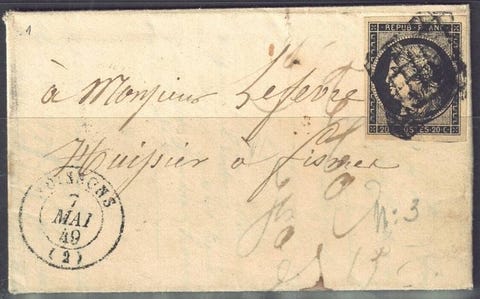 1
REPUB·FRANC
20 c
20·c
à Monsieur Lefèvre
Huissier à Fismes
SOISSONS
7
MAI
49
(2)
N: 3